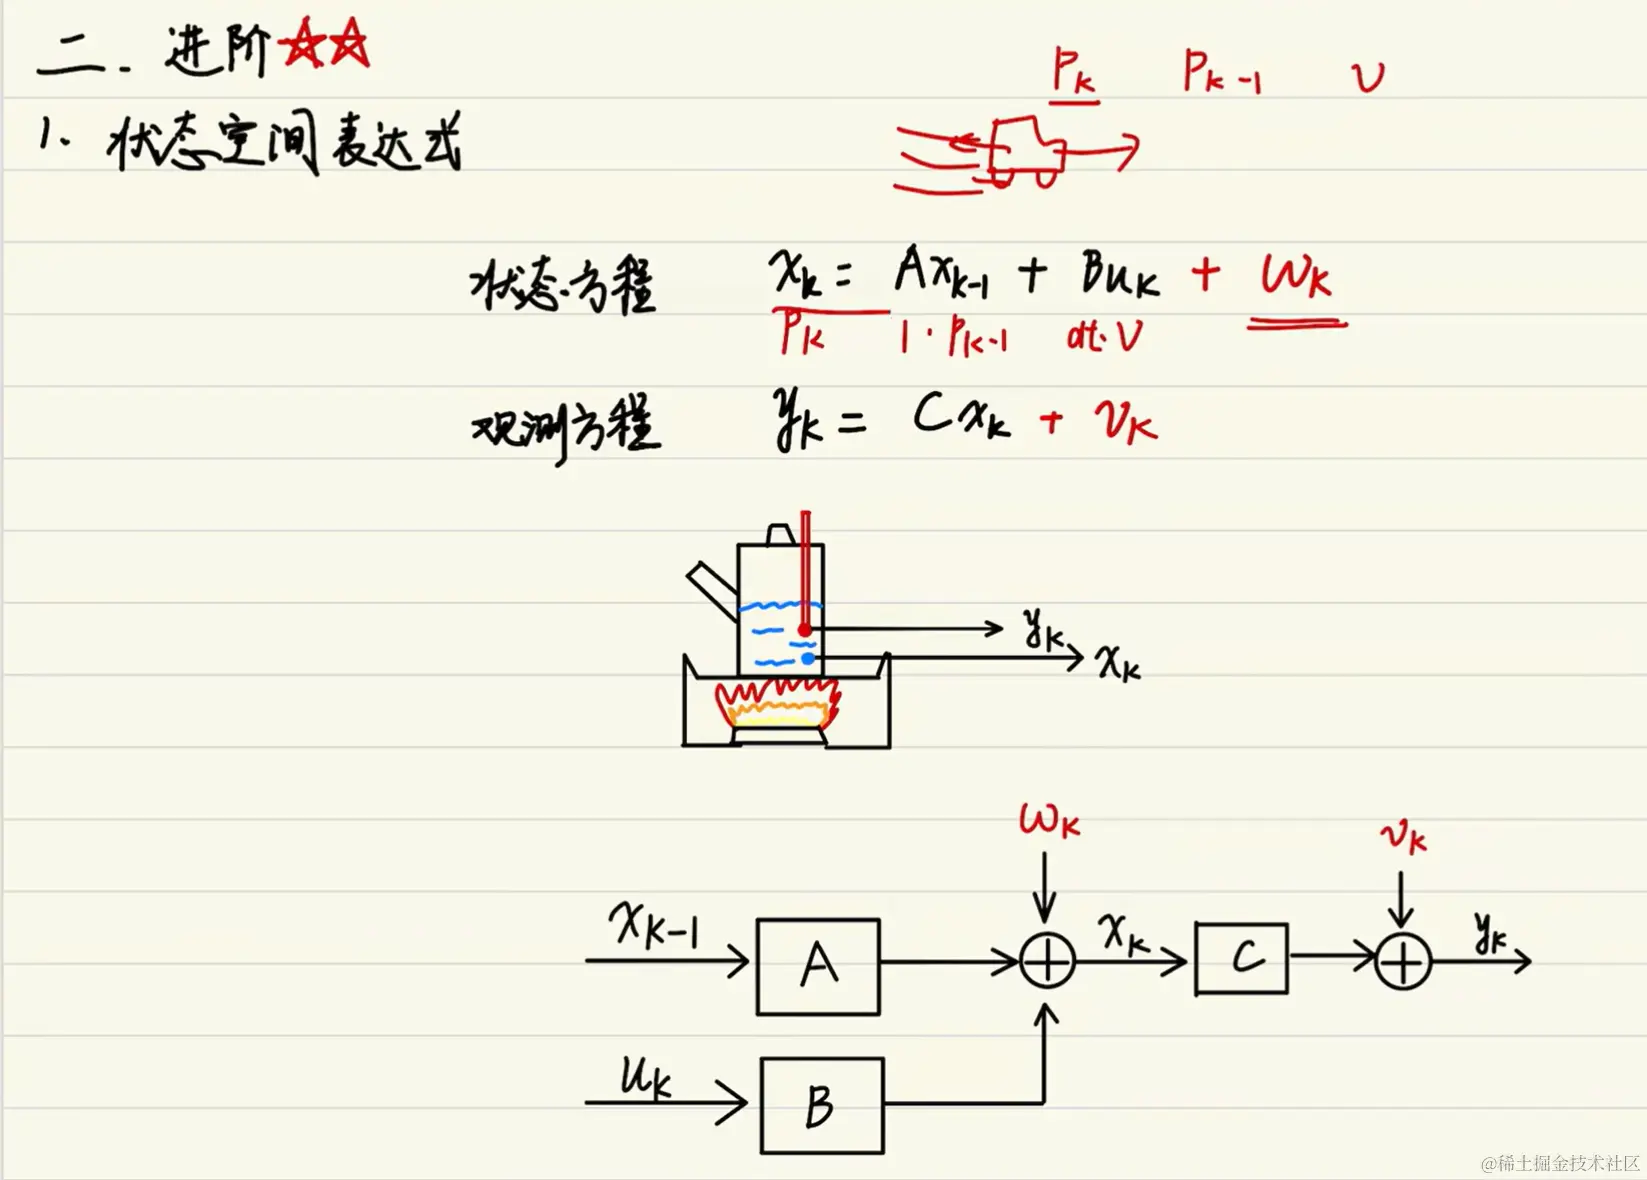 二. 进阶☆☆
P_k P_{k-1} v
1. 状态空间表达式
状态方程 x_k = Ax_{k-1} + Bu_k + w_k
P_k 1·P_{k-1} dt·v
观测方程 y_k = Cx_k + v_k
y_k
x_k
w_k v_k
x_{k-1} A x_k C y_k
u_k B
@稀土掘金技术社区